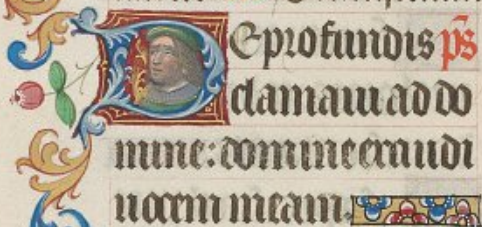 De profundis ps
clamaui ad do
mine: domine exaudi
uocem meam.